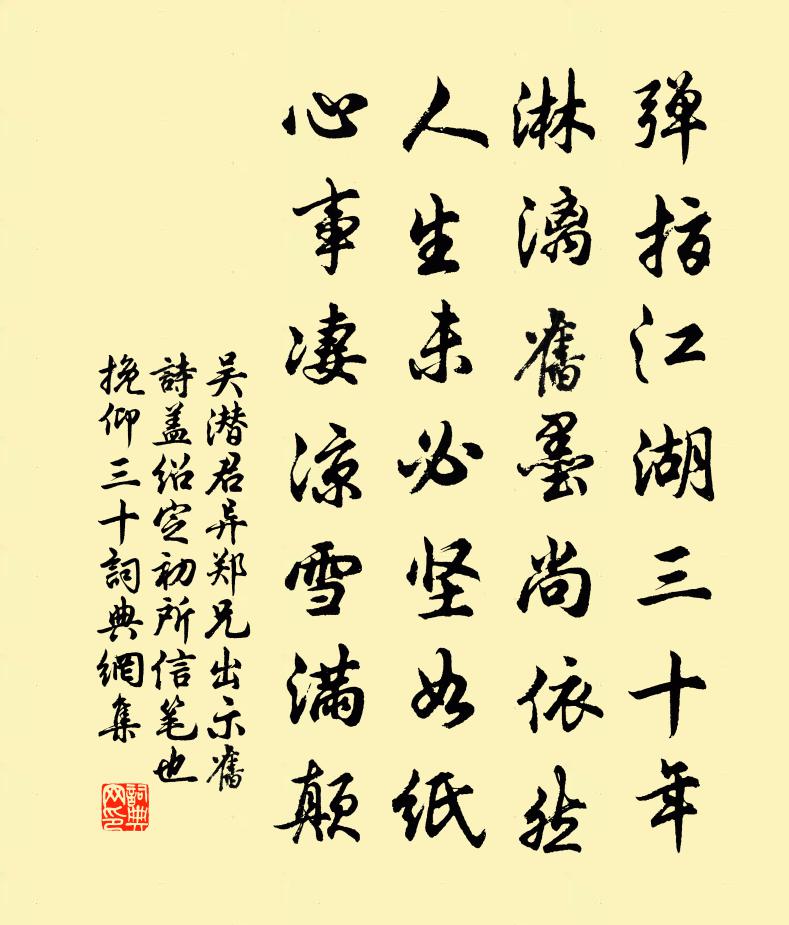 弹指江湖三十年
淋漓舊墨尚依然
人生未必坚如纸
心事凄凉雪满颠
吴潜君异郑兄出示舊
詩盖绍定初所信笔也
挽仰三十詞典網集
詞典網印